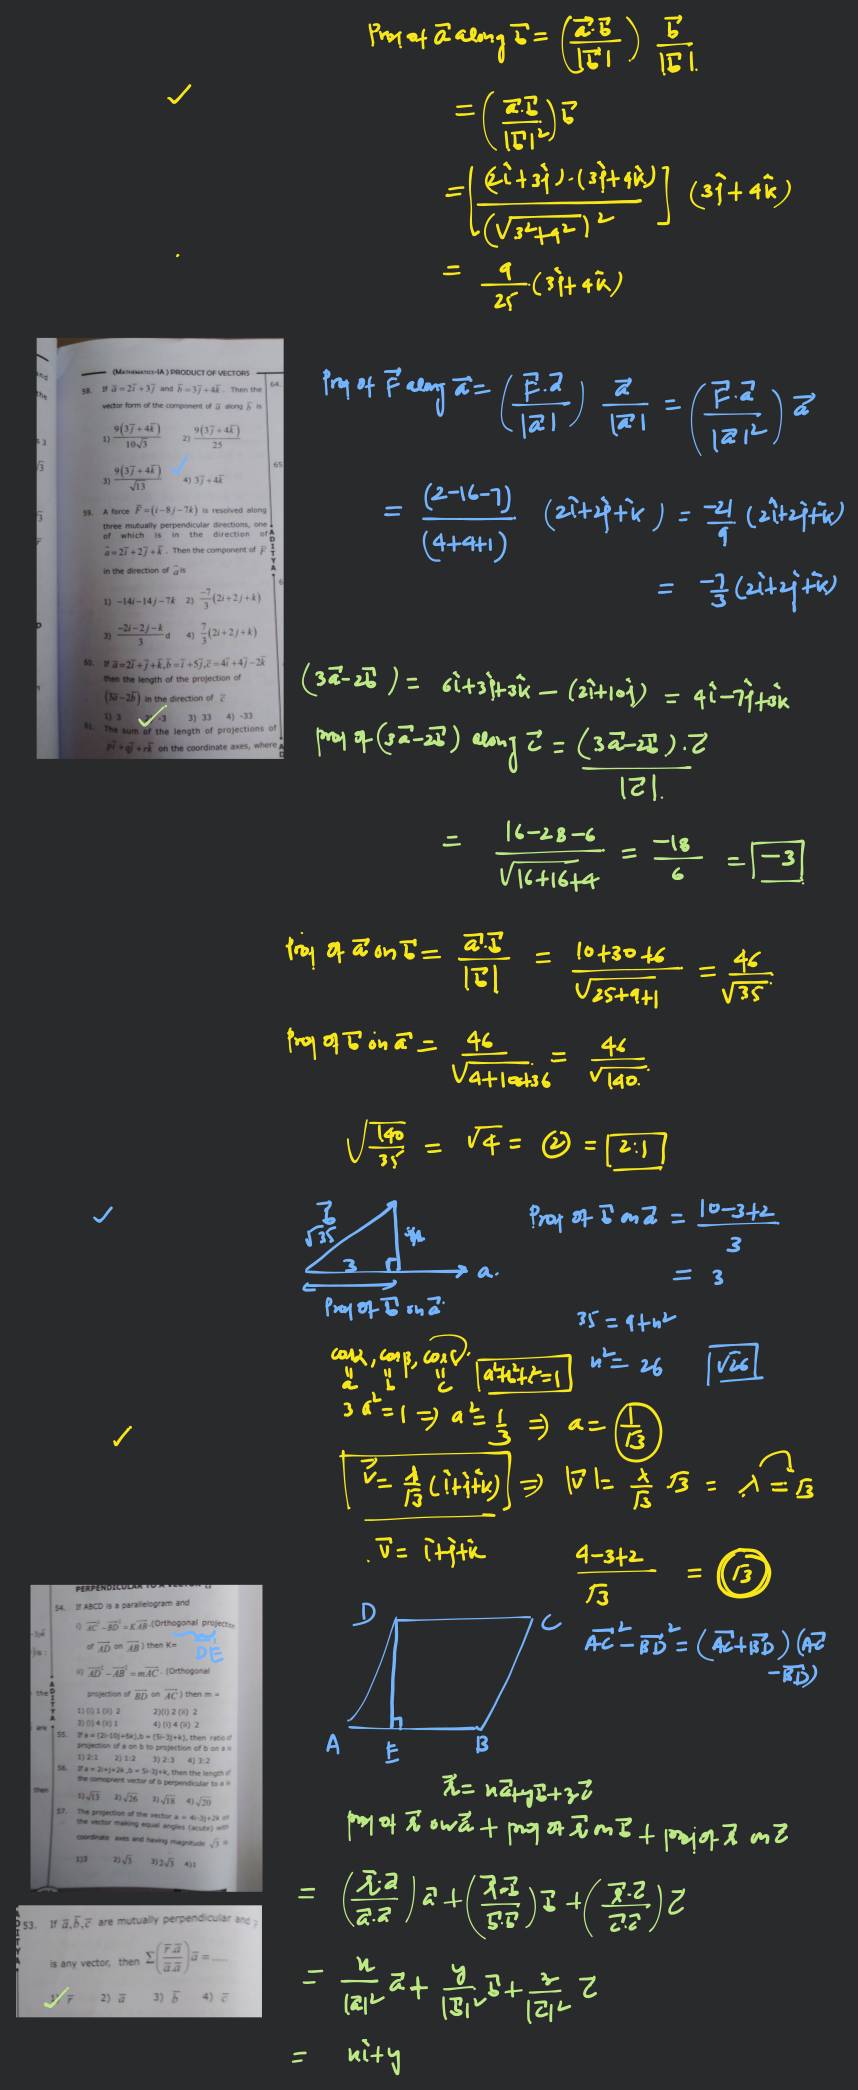 Proj of a⃗ along b⃗ = (a⃗.b⃗/|b⃗|) b⃗/|b⃗|.
= (a⃗.b⃗/|b⃗|²) b⃗
= [(2î+3ĵ).(3ĵ+4k̂)/(√3²+4²)²] (3ĵ+4k̂)
= 9/25 .(3ĵ+4k̂)
(MATHEMATICS-IA) PRODUCT OF VECTORS
58. If a̅=2i̅+3j̅ and b̅=3j̅+4k̅. Then the
vector form of the component of a̅ along b̅ is
1) 9(3j̅+4k̅)/10√3 2) 9(3j̅+4k̅)/25
3) 9(3j̅+4k̅)/√13 4) 3j̅+4k̅
59. A force F̅=(i-8j-7k) is resolved along
three mutually perpendicular directions, one
of which is in the direction of
a̅=2i̅+2j̅+k̅. Then the component of F̅
in the direction of a̅ is
1) -14i-14j-7k 2) -7/3(2i+2j+k)
3) -2i-2j-k/3 4) 7/3(2i+2j+k)
60. If a̅=2i̅+j̅+k̅,b̅=i̅+5j̅,c̅=4i̅+4j̅-2k̅
then the length of the projection of
(3a̅-2b̅) in the direction of c̅
1) 3 -3 3) 33 4) -33
61. The sum of the length of projections of
pi̅+qj̅+rk̅ on the coordinate axes, where
64.
65
ADITYA
Proj of F⃗ along a⃗ = (F⃗.a⃗/|a⃗|) a⃗/|a⃗| = (F⃗.a⃗/|a⃗|²) a⃗
= (2-16-7)/(4+4+1) (2î+2ĵ+k̂) = -21/9 (2î+2ĵ+k̂)
= -7/3 (2î+2ĵ+k̂)
(3a⃗-2b⃗) = 6î+3ĵ+3k̂ - (2î+10ĵ) = 4î-7ĵ+3k̂
proj of (3a⃗-2b⃗) along c⃗ = (3a⃗-2b⃗).c⃗/|c⃗|.
= 16-28-6/√16+16+4 = -18/6 = -3
Proj of a⃗ on b⃗ = a⃗.b⃗/|b⃗| = 10+30+6/√25+9+1 = 46/√35.
Proj of b⃗ on a⃗ = 46/√4+100+36 = 46/√140.
√140/35 = √4 = 2 = 2:1
b⃗
√35
3
a.
Proj of b⃗ on a⃗
Proj of b⃗ on a⃗ = 10-3+2/3
= 3
35 = 9+x²
x² = 26 √26
cosα, cosβ, cosγ.
a b c
a²+b²+c²=1
3a²=1 ⇒ a²=1/3 ⇒ a = 1/√3
v⃗ = λ/√3 (î+ĵ+k̂) ⇒ |v⃗| = λ/√3 √3 = λ = √3
v⃗ = î+ĵ+k̂
4-3+2/√3 = √3
54. If ABCD is a parallelogram and
i) AC̅²-BD̅²=KAB̅.(Orthogonal projection
of AD̅ on AB̅) then K=
DE
ii) AD̅²-AB̅²=mAC̅.(Orthogonal
projection of BD̅ on AC̅) then m =
1) (i) 1 (ii) 2 2)(i) 2 (ii) 2
3) (i) 4 (ii) 1 4) (i) 4 (ii) 2
55. If a = (2i-10j+6k),b = (5i-3j+k), then ratio of
projection of a on b to projection of b on a is
1) 2:1 2) 1:2 3) 2:3 4) 3:2
56. If a = 2i+j+2k ,b = 5i-3j+k, then the length of
the component vector of b perpendicular to a is
1)√13 2)√26 3)√18 4)√20
57. The projection of the vector a = 4i-3j+2k on
the vector making equal angles (acute) with
coordinate axes and having magnitude √3 is
1)3 2)√3 3)2√3 4)1
D C
A E B
AC⃗²-BD⃗² = (AC⃗+BD⃗)(AC⃗
-BD⃗)
r⃗ = xa⃗+yb⃗+zc⃗
proj of r⃗ on a⃗ + proj of r⃗ on b⃗ + proj of r⃗ on c⃗
= (r⃗.a⃗/a⃗.a⃗) a⃗ + (r⃗.b⃗/b⃗.b⃗) b⃗ + (r⃗.c⃗/c⃗.c⃗) c⃗
53. If a̅,b̅,c̅ are mutually perpendicular and r̅
is any vector, then Σ(r̅.a̅/a̅.a̅)a̅=....
1) r̅ 2) a̅ 3) b̅ 4) c̅
= x/|a⃗|² a⃗ + y/|b⃗|² b⃗ + z/|c⃗|² c⃗
= xî+y